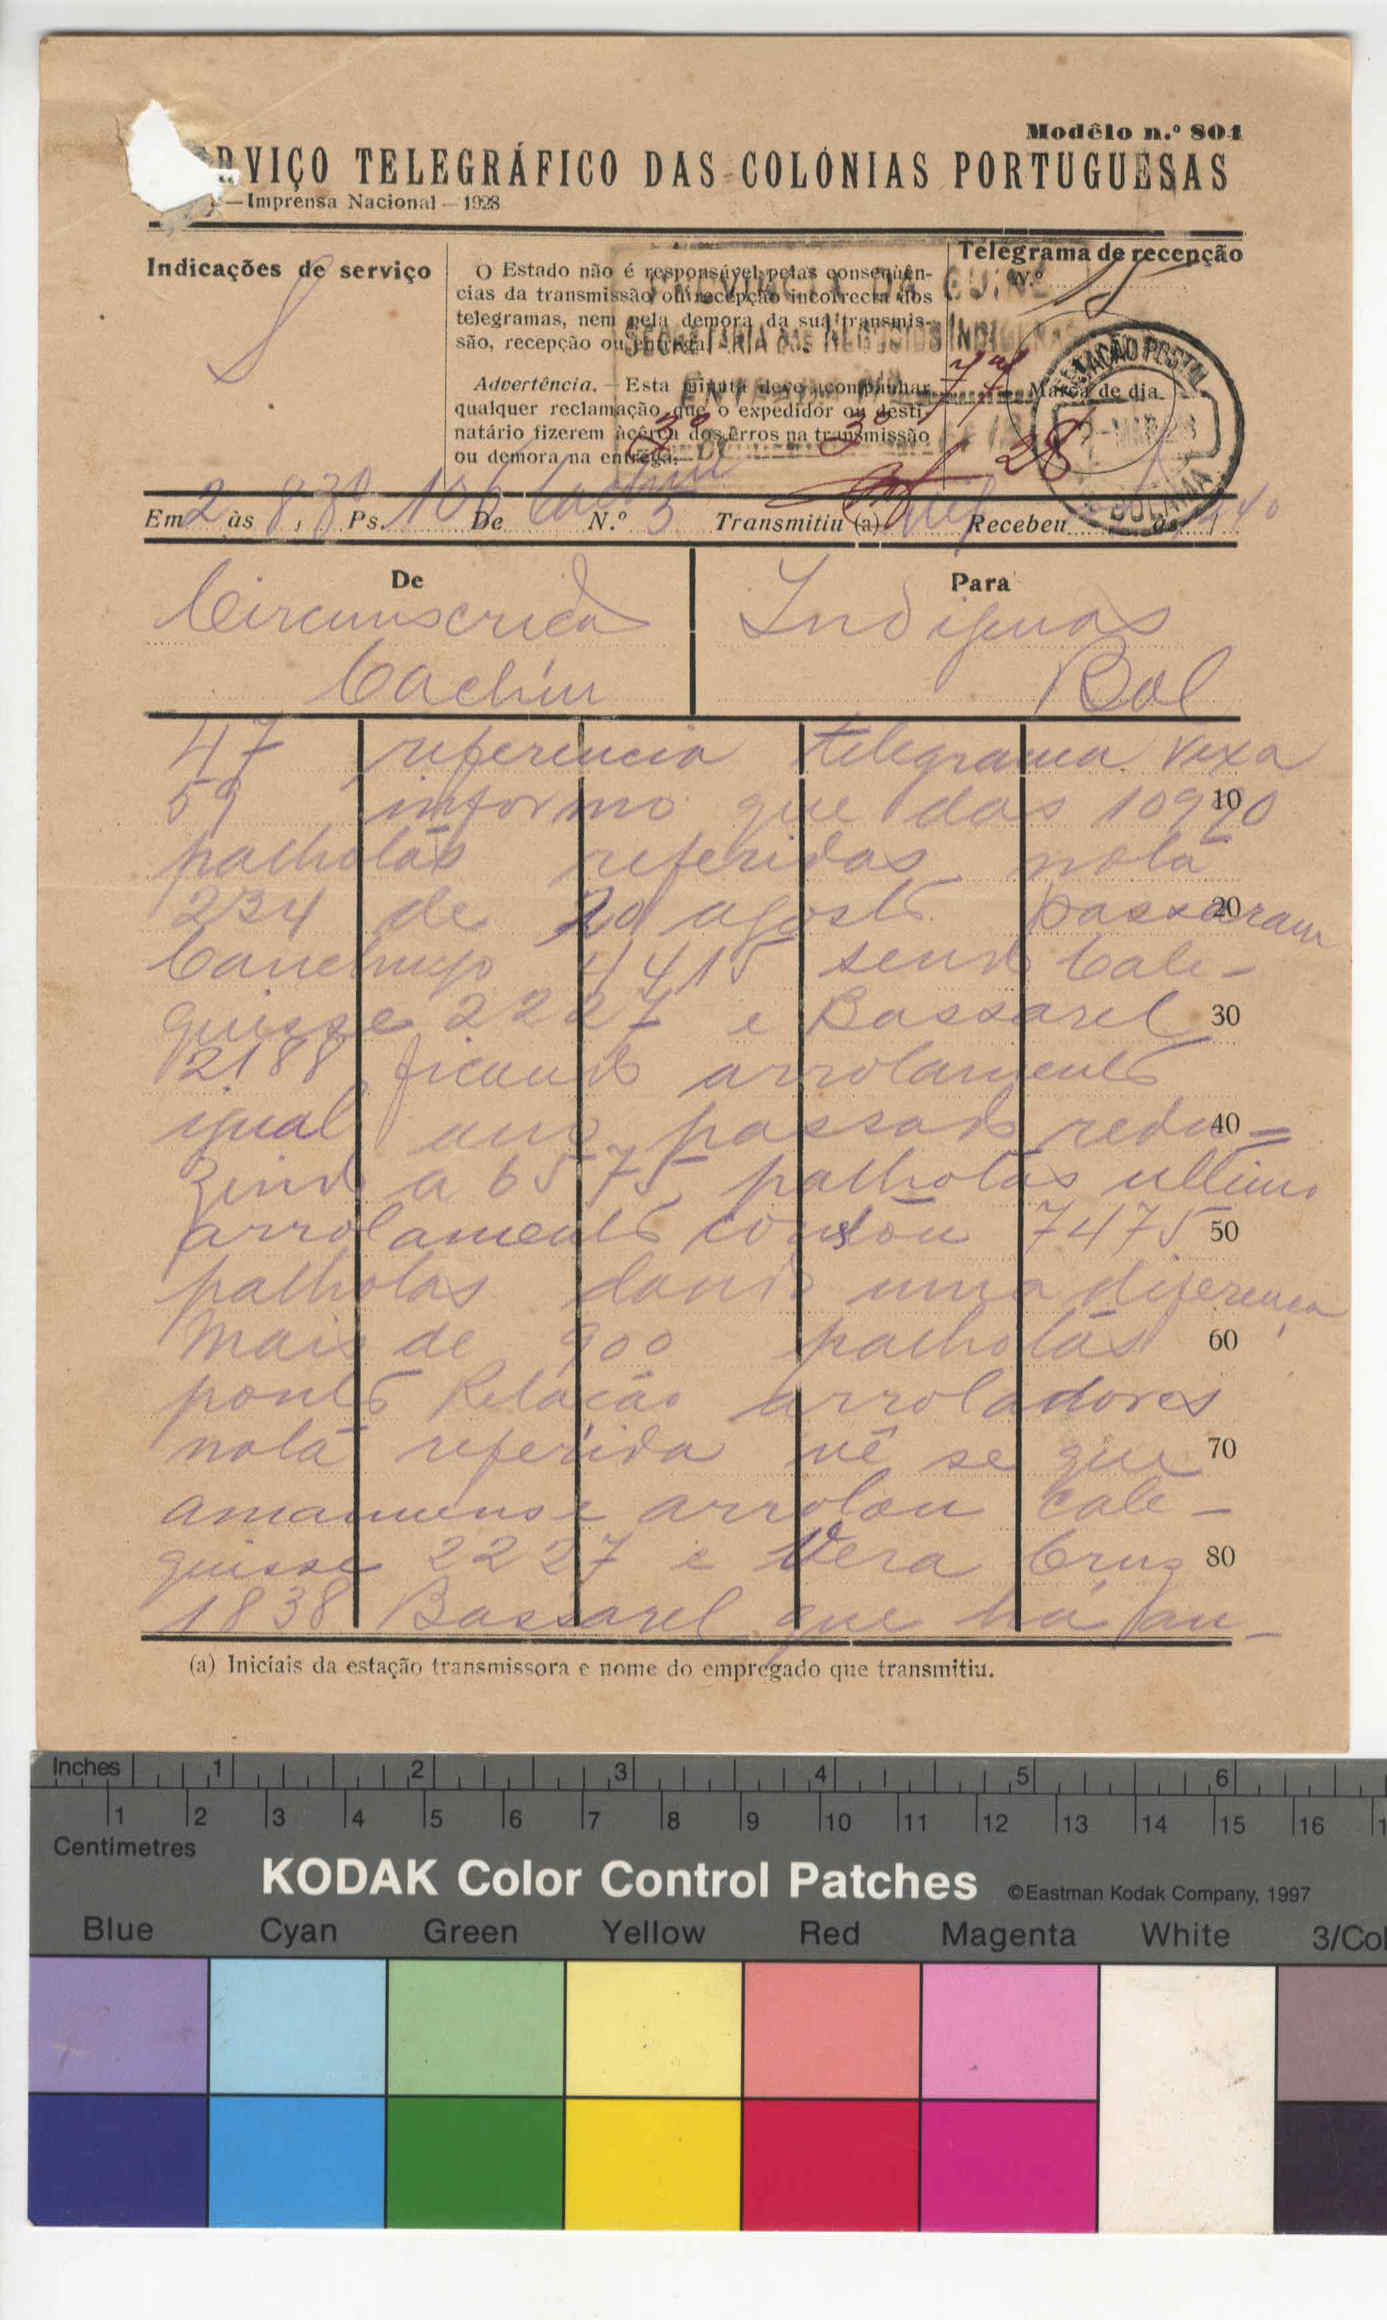 Modêlo n.º 801
RVIÇO TELEGRÁFICO DAS COLÓNIAS PORTUGUESAS
—Imprensa Nacional—1928
Indicações de serviço
S
O Estado não é responsável pelas conseqüên-
cias da transmissão ou recepção incorrecta dos
telegramas, nem pela demora da sua transmis-
são, recepção ou entrega.
Advertência.—Esta minuta deve acompanhar
qualquer reclamação que o expedidor ou desti-
natário fizerem àcêrca dos êrros na transmissão
ou demora na entrega.
PROVINCIA DA GUINÉ
SECRETARIA dos NEGOCIOS INDIGENAS
ENTRADA
3º 3º 28
Telegrama de recepção
N.º 15
Marca de dia
ESTAÇÃO POSTAL
BOLAMA
Em 2 às 8,30 Ps. 106 De Cacheu N.º 3 Transmitiu (a) Recebeu às 40
De
Circunscrição
Cacheu
Para
Indigenas
Bol
47 referencia telegrama vexa
59 informo que das 10990
10
palhotas referidas nota
234 de 20 agosto passaram
20
Canchungo 4415 sendo Cale-
guisse 2227 e Bassarel
30
2188 ficando arrolamento
igual ano passado redu=
40
zindo a 6575 palhotas ultimo
arrolamento constou 7475
50
palhotas dando uma diferença
mais de 900 palhotas
60
ponto Relação arroladores
nota referida vê se que
70
amanuense arrolou cale-
guisse 2227 e Vera Cruz
80
1838 Bassarel que há an-
(a) Iniciais da estação transmissora e nome do empregado que transmitiu.
Inches 1 2 3 4 5 6
1 2 3 4 5 6 7 8 9 10 11 12 13 14 15 16 1
Centimetres
KODAK Color Control Patches ©Eastman Kodak Company, 1997
Blue Cyan Green Yellow Red Magenta White 3/Col